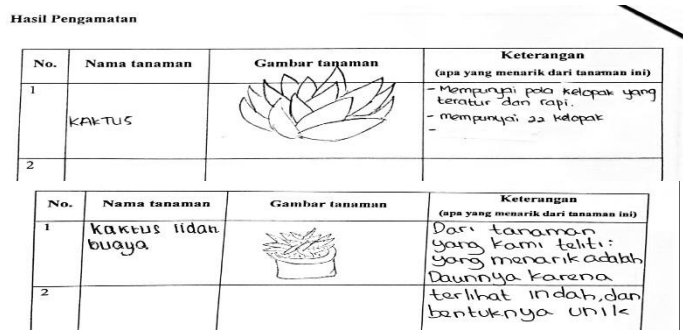 Hasil Pengamatan
No. Nama tanaman Gambar tanaman Keterangan
(apa yang menarik dari tanaman ini)
1 KAKTUS - Mempunyai pola kelopak yang
teratur dan rapi.
- mempunyai 22 kelopak
-
2
No. Nama tanaman Gambar tanaman Keterangan
(apa yang menarik dari tanaman ini)
1 kaktus lidah
buaya
Dari tanaman
yang kami teliti:
yang menarik adalah
Daunnya karena
2 terlihat indah, dan
bentuknya unik